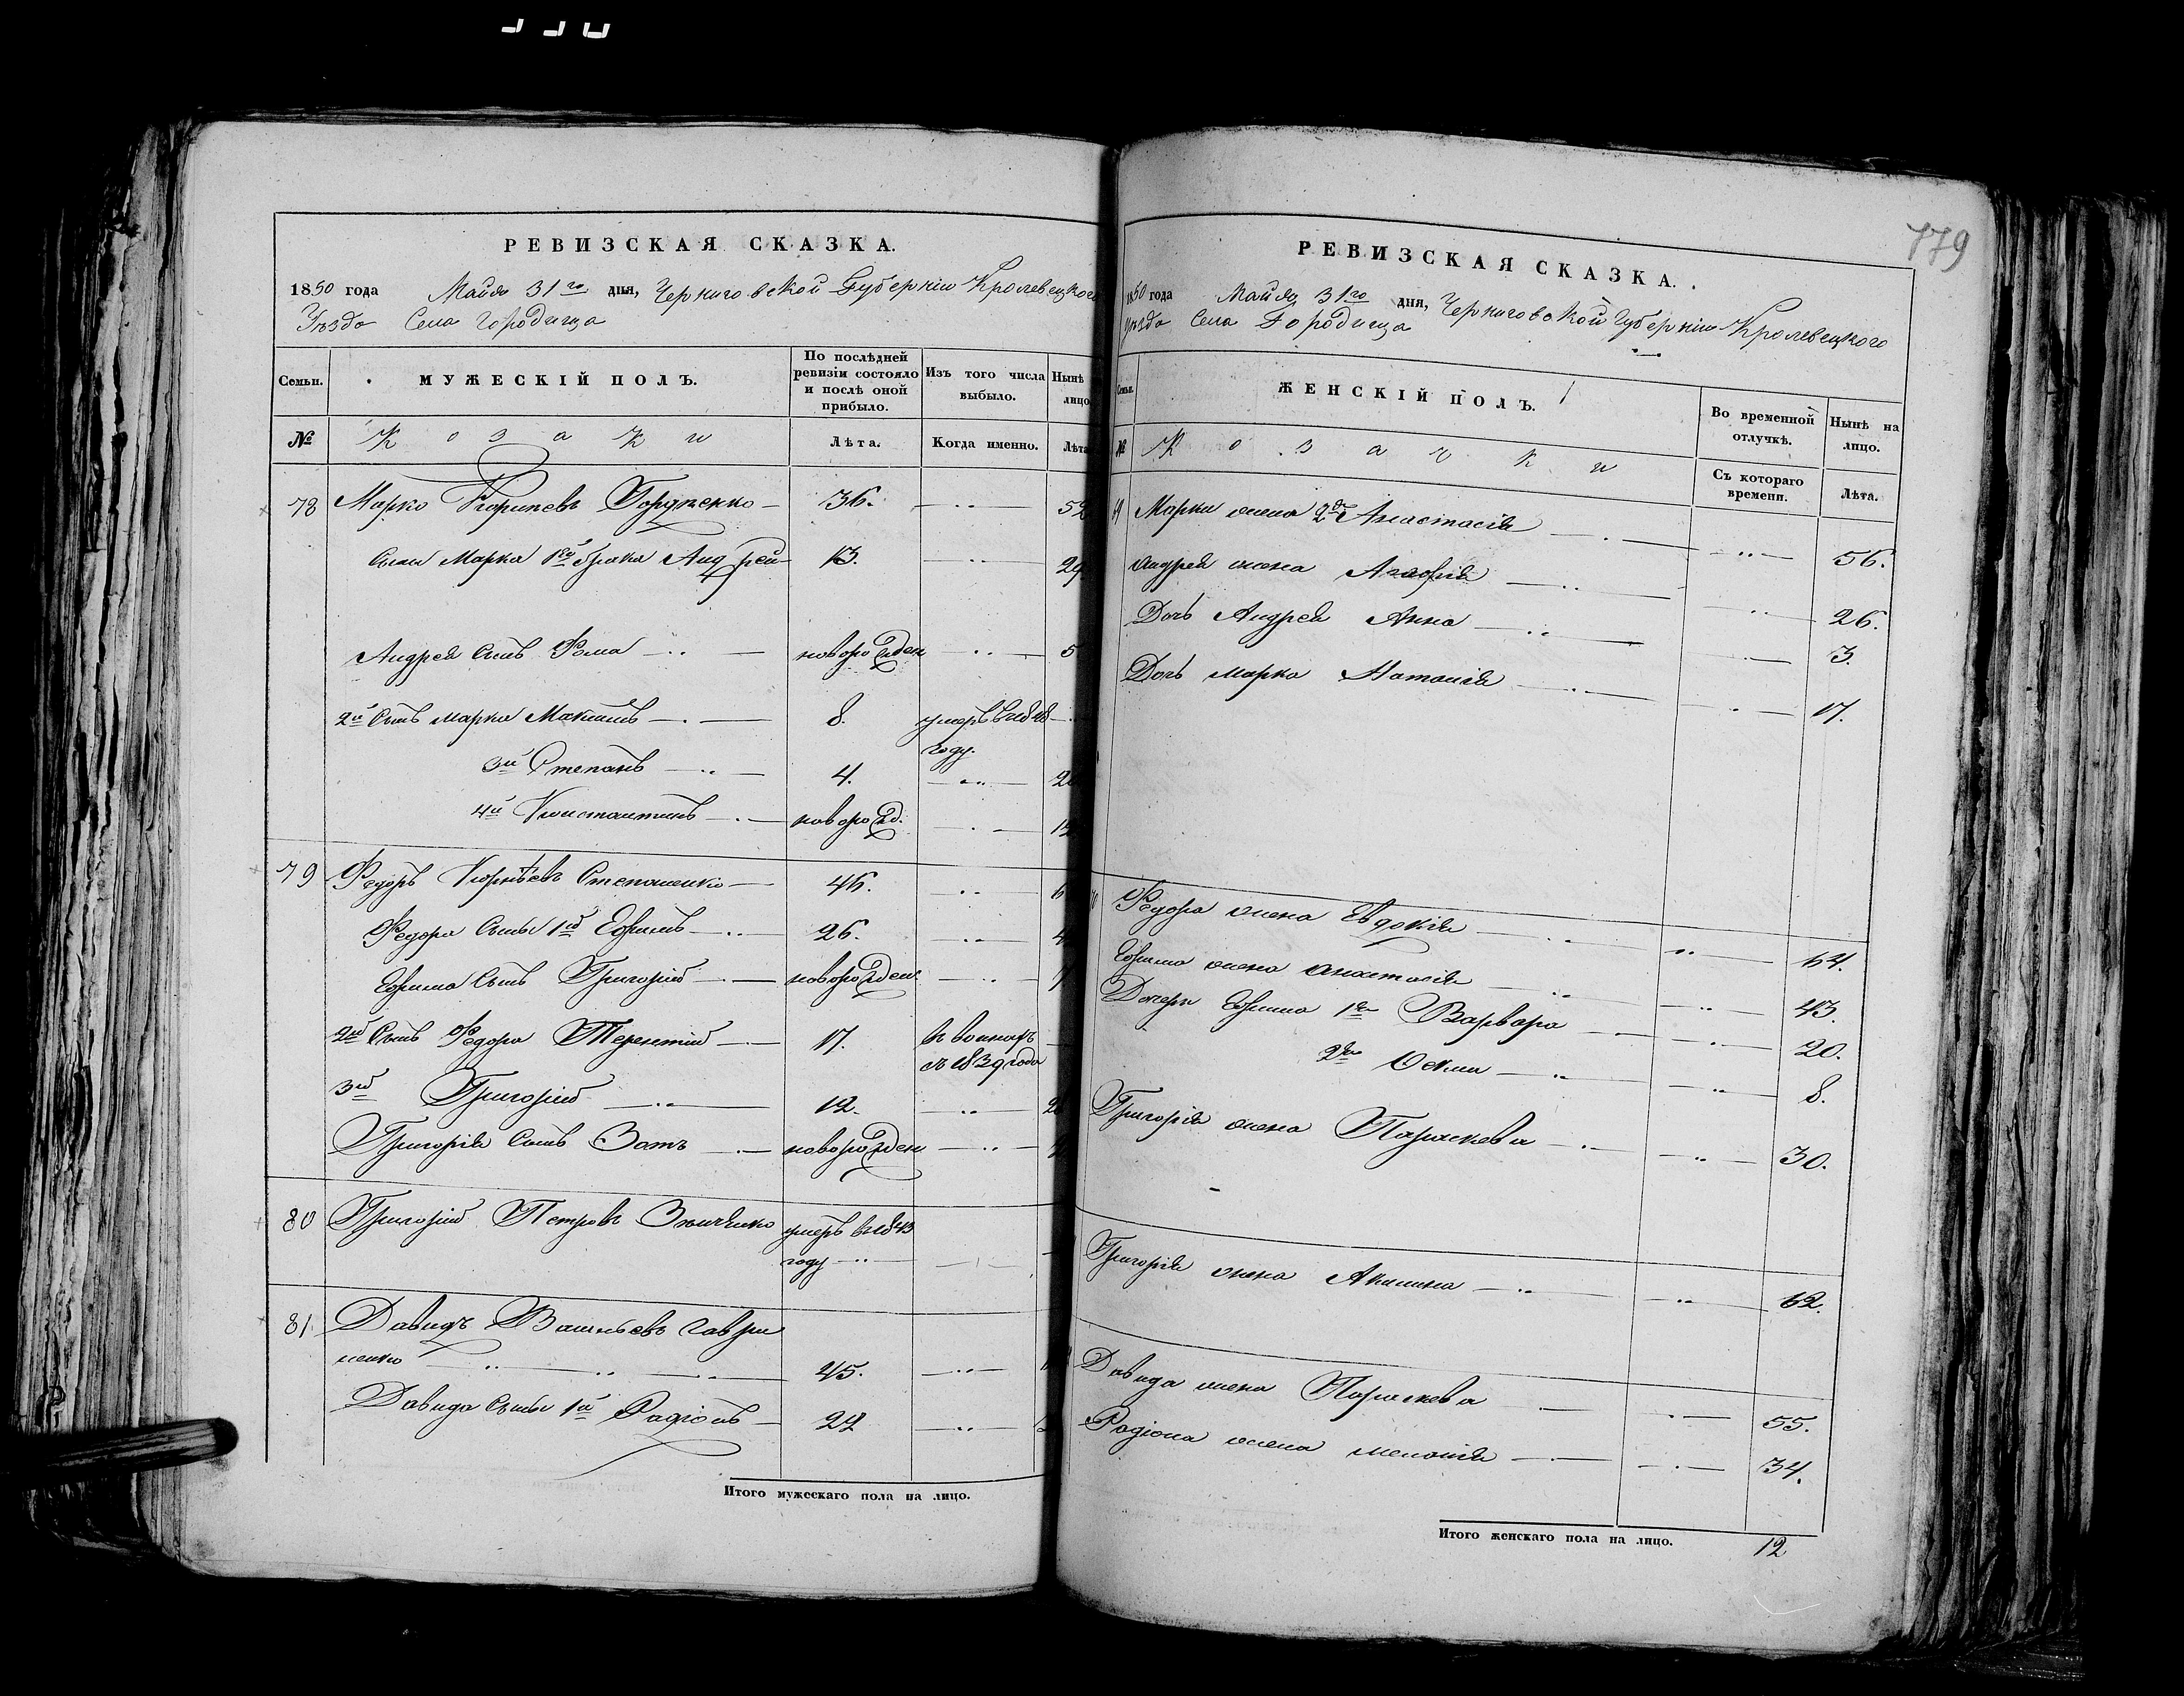 779
РЕВИЗСКАЯ СКАЗКА.
1850 года Майя 31го дня, Черниговской Губерніи Кролевецкого
Уезда Села Городища
Семьи. МУЖЕСКІЙ ПОЛЪ. По послѣдней ревизіи состояло и послѣ оной прибыло. Изъ того числа выбыло. Нынѣ лицо
№ Козаки Лѣта. Когда именно. Лѣта
78 Марко 36. 52
Сыны Марка 1го брака Андрей 13. 29
Андрея Сынъ Фома новорожден 5
2й Сынъ Марка Максимъ 8. умеръ в 1848
году.
3й Степанъ 4. 20
4й Константинъ новорожд.
79 Федоръ Корнѣевъ Степаненко 46.
Федора Сыны 1й Ефимъ 26.
Ефима Сынъ Григорій новорожден.
2й Сынъ Федора Терентій 17.
с 1839 года
3й Григорій 12.
Григорія Сынъ новорожден
80 Григорій Петровъ умеръ в 1843
году
81 Давидъ Гаври
ленко 45.
Давида Сыны 1й Радіонъ
Итого мужескаго пола на лицо.
РЕВИЗСКАЯ СКАЗКА.
1850 года Майя 31го дня, Черниговской Губерніи Кролевецкого
Уезда Села Городища
Семьи. ЖЕНСКІЙ ПОЛЪ. Во временной отлучкѣ. Нынѣ на лицо.
№ Козачки Съ котораго времени. Лѣта.
Марка жена 2я Анастасія 56.
Андрея жена Агафія 26.
Дочь Андрея Анна 3.
Дочь Марка Наталія 17.
Федора жена Евдокія 64.
Ефима жена Анастасія 43.
Дочери Ефима 1я Варвара 20.
2я 8.
Григорія жена Параскева 30.
Григорія жена Акилина 62.
Давида жена Параскева 55.
Радіона жена Меланія 34.
Итого женскаго пола на лицо. 12